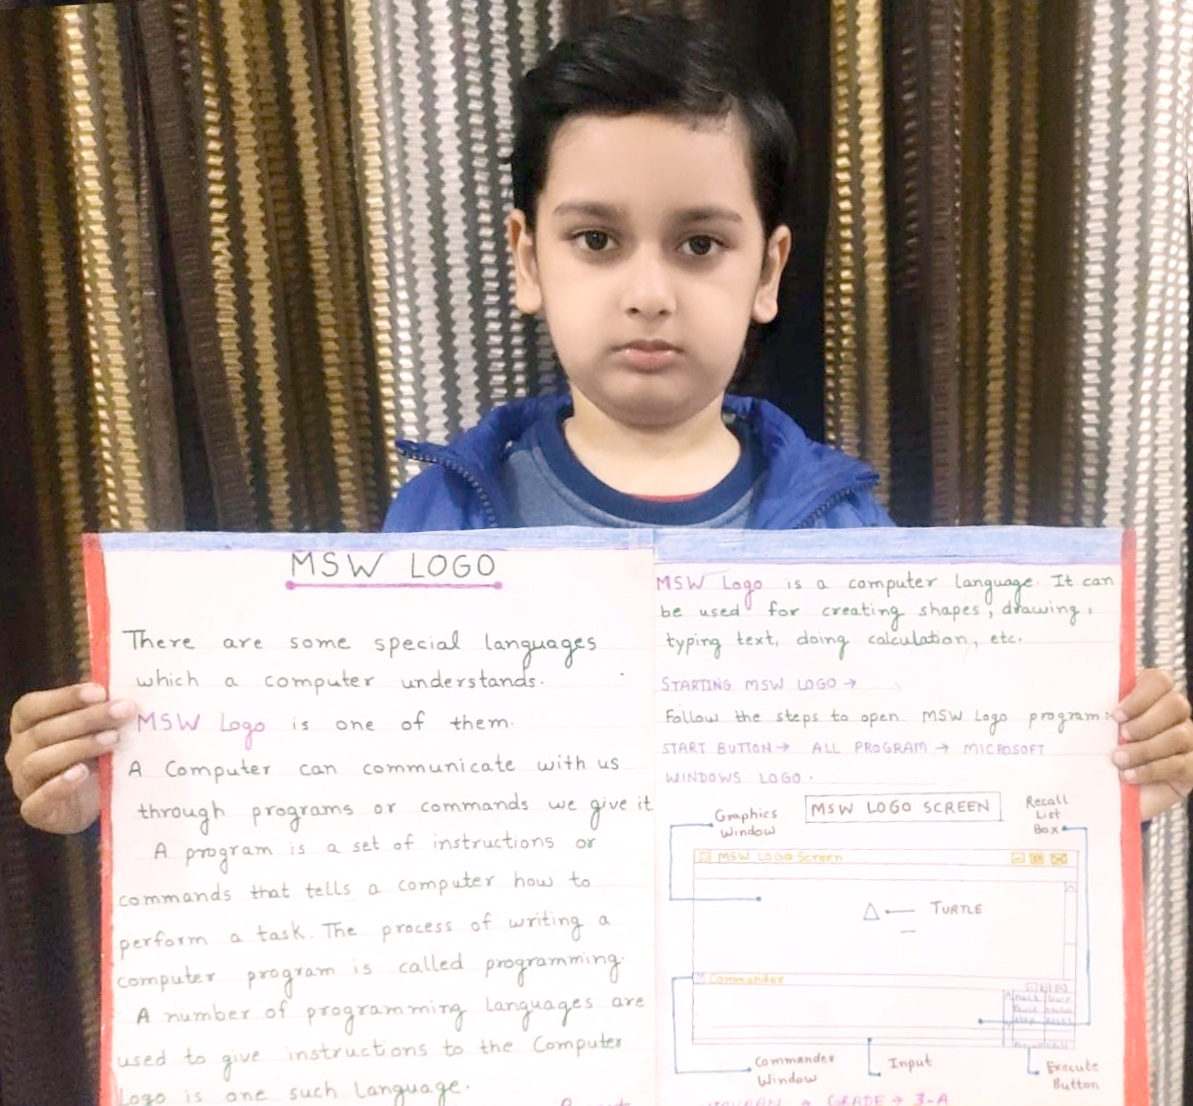 MSW LOGO
There are some special languages
which a computer understands.
MSW Logo is one of them.
A Computer can communicate with us
through programs or commands we give it
A program is a set of instructions or
commands that tells a computer how to
perform a task. The process of writing a
computer program is called programming.
A number of programming languages are
used to give instructions to the Computer
Logo is one such language.
MSW Logo is a computer language. It can
be used for creating shapes, drawing,
typing text, doing calculation, etc.
STARTING MSW LOGO →
Follow the steps to open MSW Logo program:
START BUTTON → ALL PROGRAM → MICROSOFT
WINDOWS LOGO.
Graphics
Window
MSW LOGO SCREEN
Recall
List
Box
MSW LOGO Screen
TURTLE
Commander
Commander
Window
Input
Execute
Button
GRADE → 3-A